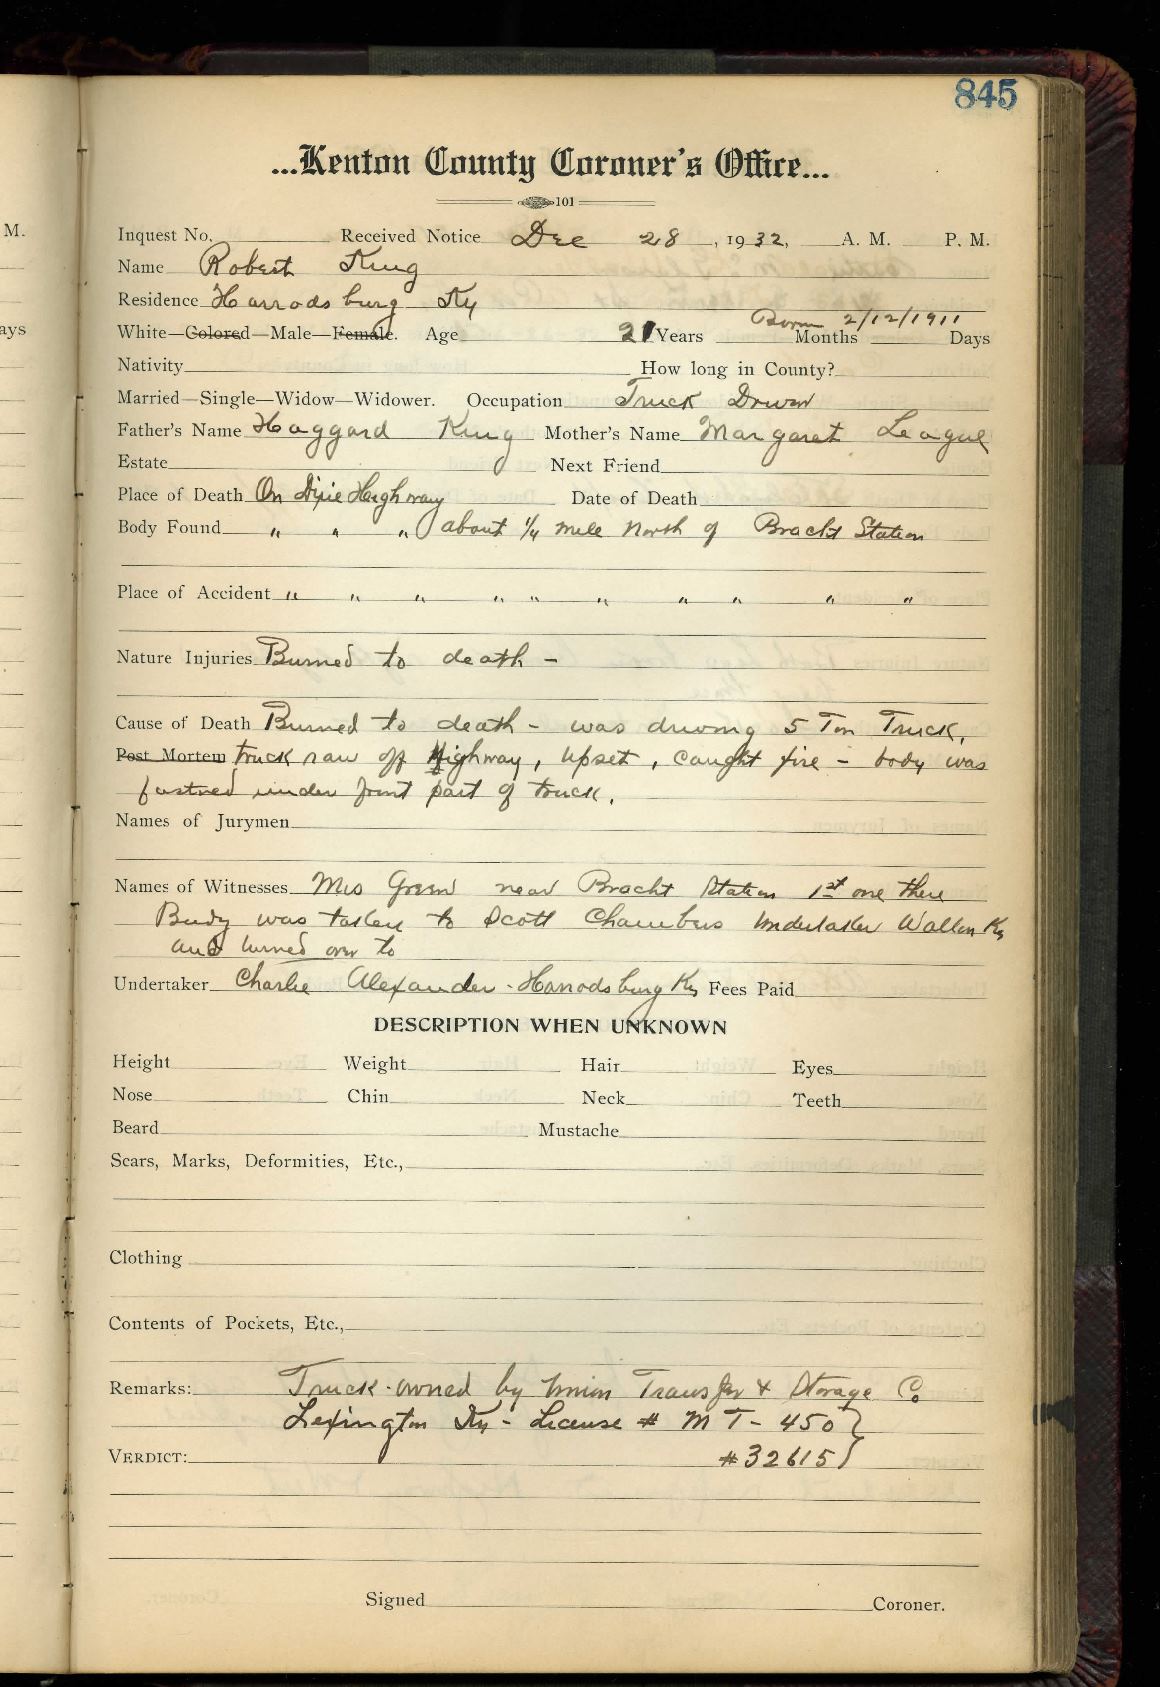 845
...Kenton County Coroner's Office...
101
M.
Inquest No. Received Notice Dec 28, 1932, A. M. P. M.
Name Robert King
Residence Harrodsburg Ky
Born 2/12/1911
ays
White—Colored—Male—Female. Age 21 Years Months Days
Nativity How long in County?
Married—Single—Widow—Widower. Occupation Truck Driver
Father's Name Haggard King Mother's Name Margaret League
Estate Next Friend
Place of Death On Dixie Highway Date of Death
Body Found " " " about 1/4 mile North of Bracht Station
Place of Accident " " " " " " " " " "
Nature Injuries Burned to death -
Cause of Death Burned to death - was driving 5 Ton Truck,
Post Mortem truck ran off Highway, upset, caught fire - body was
fastned under front part of truck.
Names of Jurymen
Names of Witnesses Mrs Green near Bracht Station 1st one there
Body was taken to Scott Chambers Undertaker Walton Ky
and turned over to
Undertaker Charlie Alexander - Harrodsburg Ky Fees Paid
DESCRIPTION WHEN UNKNOWN
Height Weight Hair Eyes
Nose Chin Neck Teeth
Beard Mustache
Scars, Marks, Deformities, Etc.,
Clothing
Contents of Pockets, Etc.,
Remarks: Truck-owned by Union Transfer & Storage Co
Lexington Ky - License # M T - 450 }
VERDICT: #32615 )
Signed Coroner.